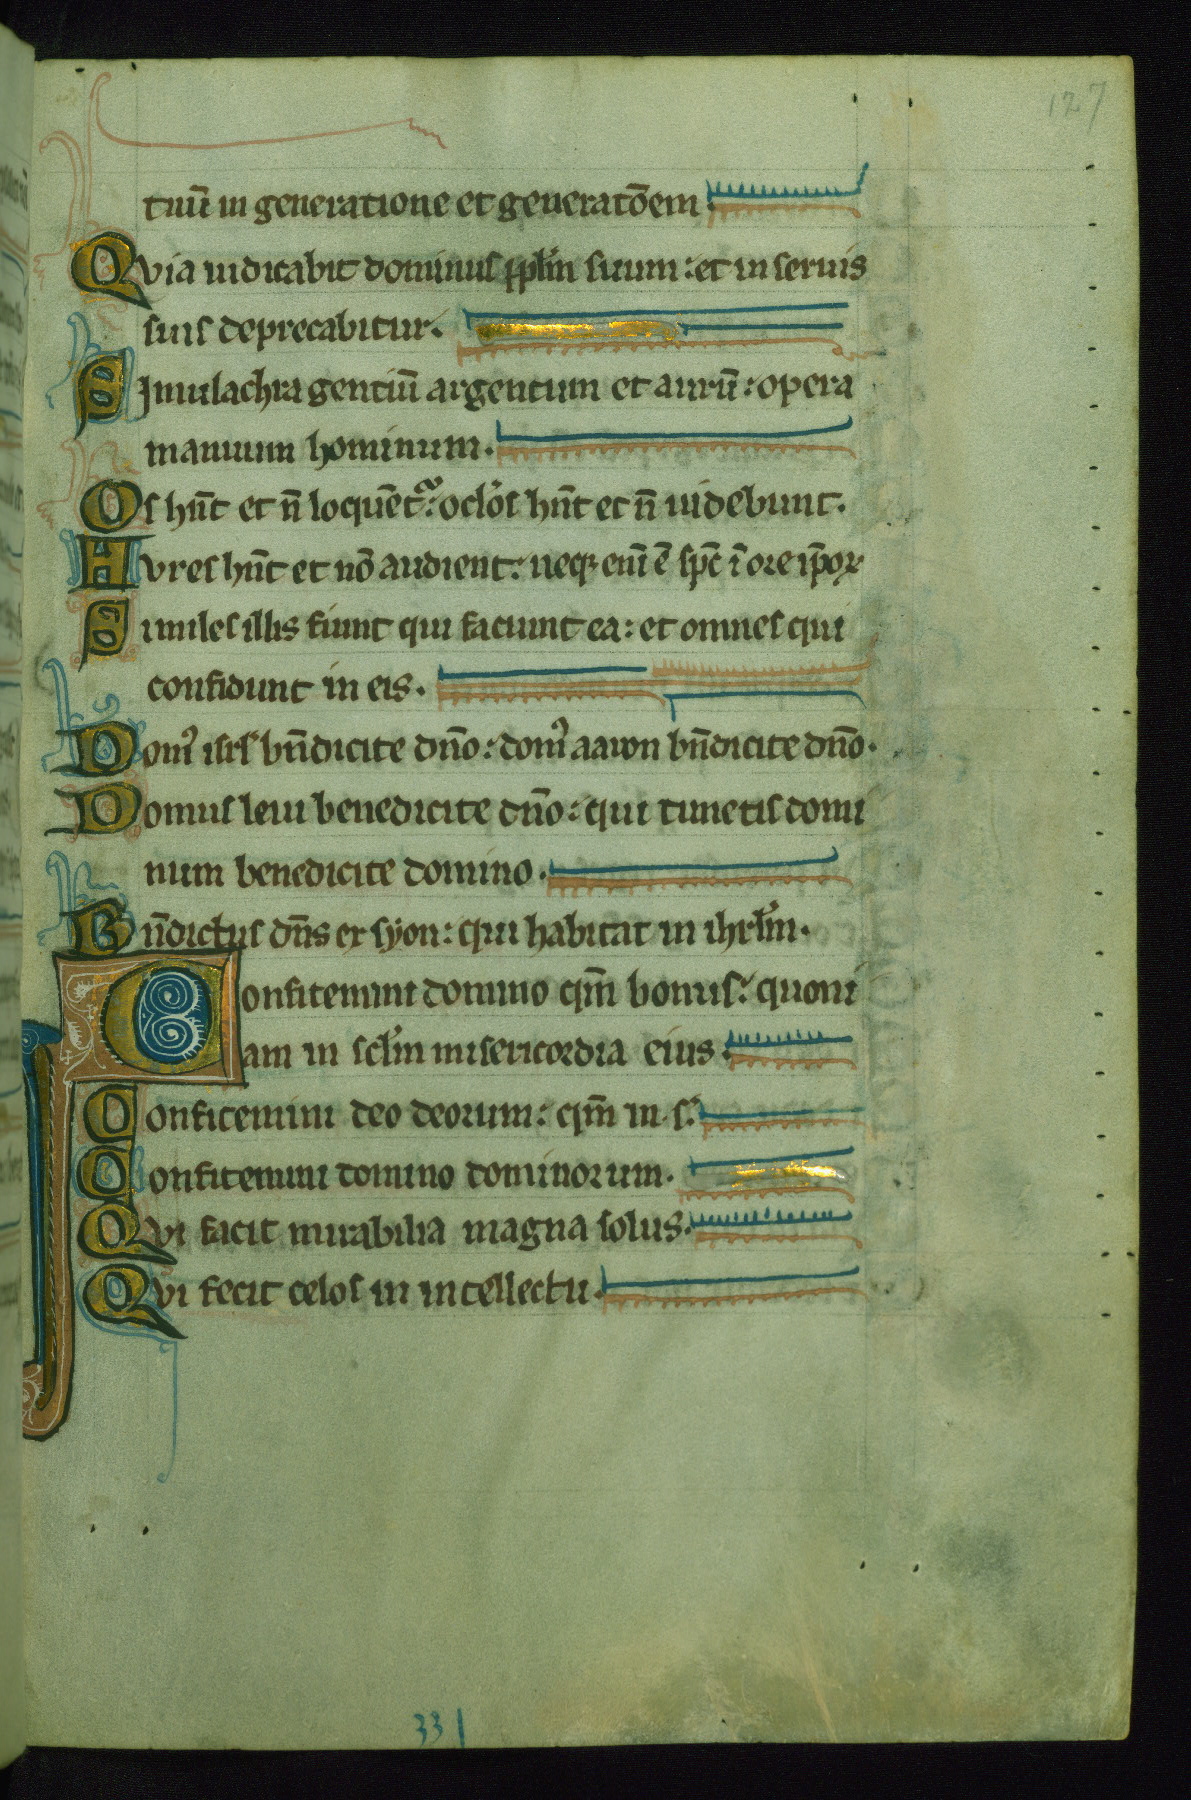 127
tuū in generatione et generatōem.
Qvia iudicabit dominus pplm̄ suum : et in seruis
suis deprecabitur.
Simulachra gentiū argentum et aurū : opera
manuum hominum.
Os hn̄t et n̄ loquēt᷑ : oclōs hn̄t et n̄ uidebunt.
Avres hn̄t et nō audient : neq; eni͞ ē sp̄c ī ore ip̄oꝝ
Similes illis fiunt qui faciunt ea : et omnes qui
confidunt in eis.
Domꝰ isrl̄ bn̄dicite dn̄o : domꝰ aaron bn̄dicite dn̄o.
Domus leui benedicite dn̄o : qui timetis domi
num benedicite domino.
Bn̄dictus dn̄s ex syon : qui habitat in ihrl̄m.
Confitemini domino qm̄ bonus : quoni
am in scl̄m misericordia eius.
Confitemini deo deorum : qm̄ in s.
Confitemini domino dominorum.
Qvi facit mirabilia magna solus.
Qvi fecit celos in intellectu.
331